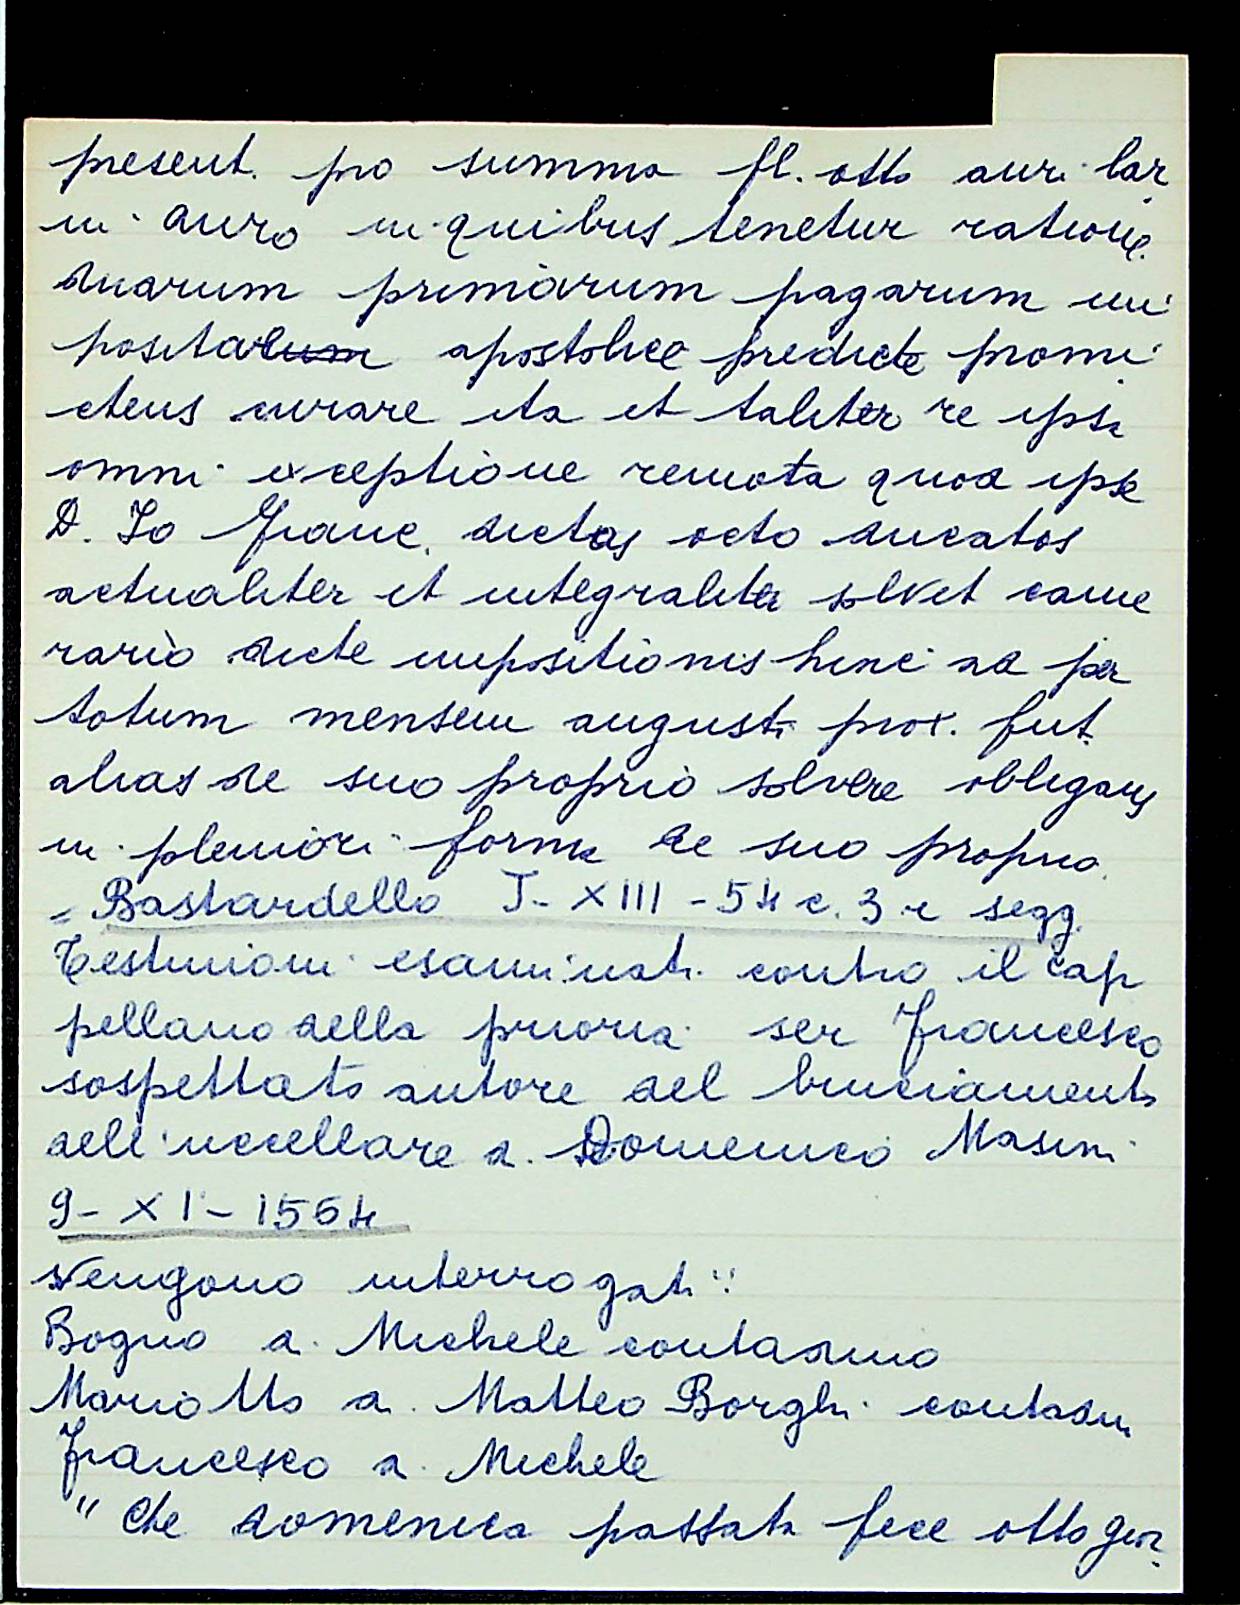 present. pro summa fl. otto auri lar
in auro in quibus tenetur ratione
duarum primarum pagarum im
positarum apostolice predicte promi
ctens curare ita et taliter re ipsa
omni exceptione remota quod ipse
D. Jo Franc. dictos octo ducatos
actualiter et integraliter solvet came
rario dicte impositionis hinc ad per
totum mensem augusti prox. fut.
alias de suo proprio solvere obligans
in pleniori forma de suo proprio.
= Bastardello J- XIII - 54 c. 3 e segg.
Testimoni esaminati contro il cap
pellano della prioria ser Francesco
sospettato autore del bruciamento
dell'uccellare d. Domenico Masini
9- XI- 1554
Vengono interrogati:
Bogno d. Michele contadino
Mariotto d. Matteo Borghi contadin
Francesco d. Michele
" Che domenica passata fece otto gior.